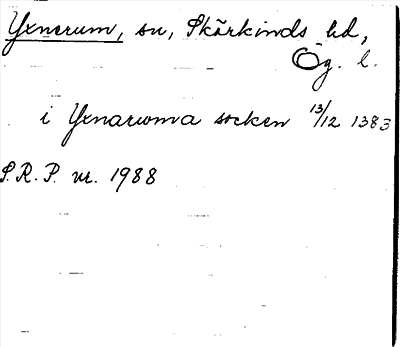 Yxnerum, sn, Skärkinds hd,
Ög. l.
i Yxnarwma socken 13/12 1383
S.R.P. nr. 1988